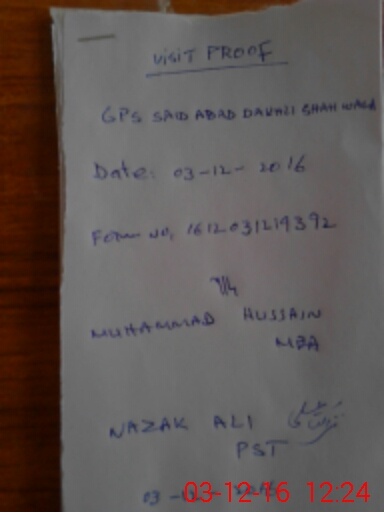 VISIT PROOF
GPS SAID ABAD DAVALI SHAH WALA
Date: 03-12-2016
Form No, 1612031219392
MUHAMMAD HUSSAIN
MEA
NAZAK ALI
PST
03-12-2016
03-12-16 12:24